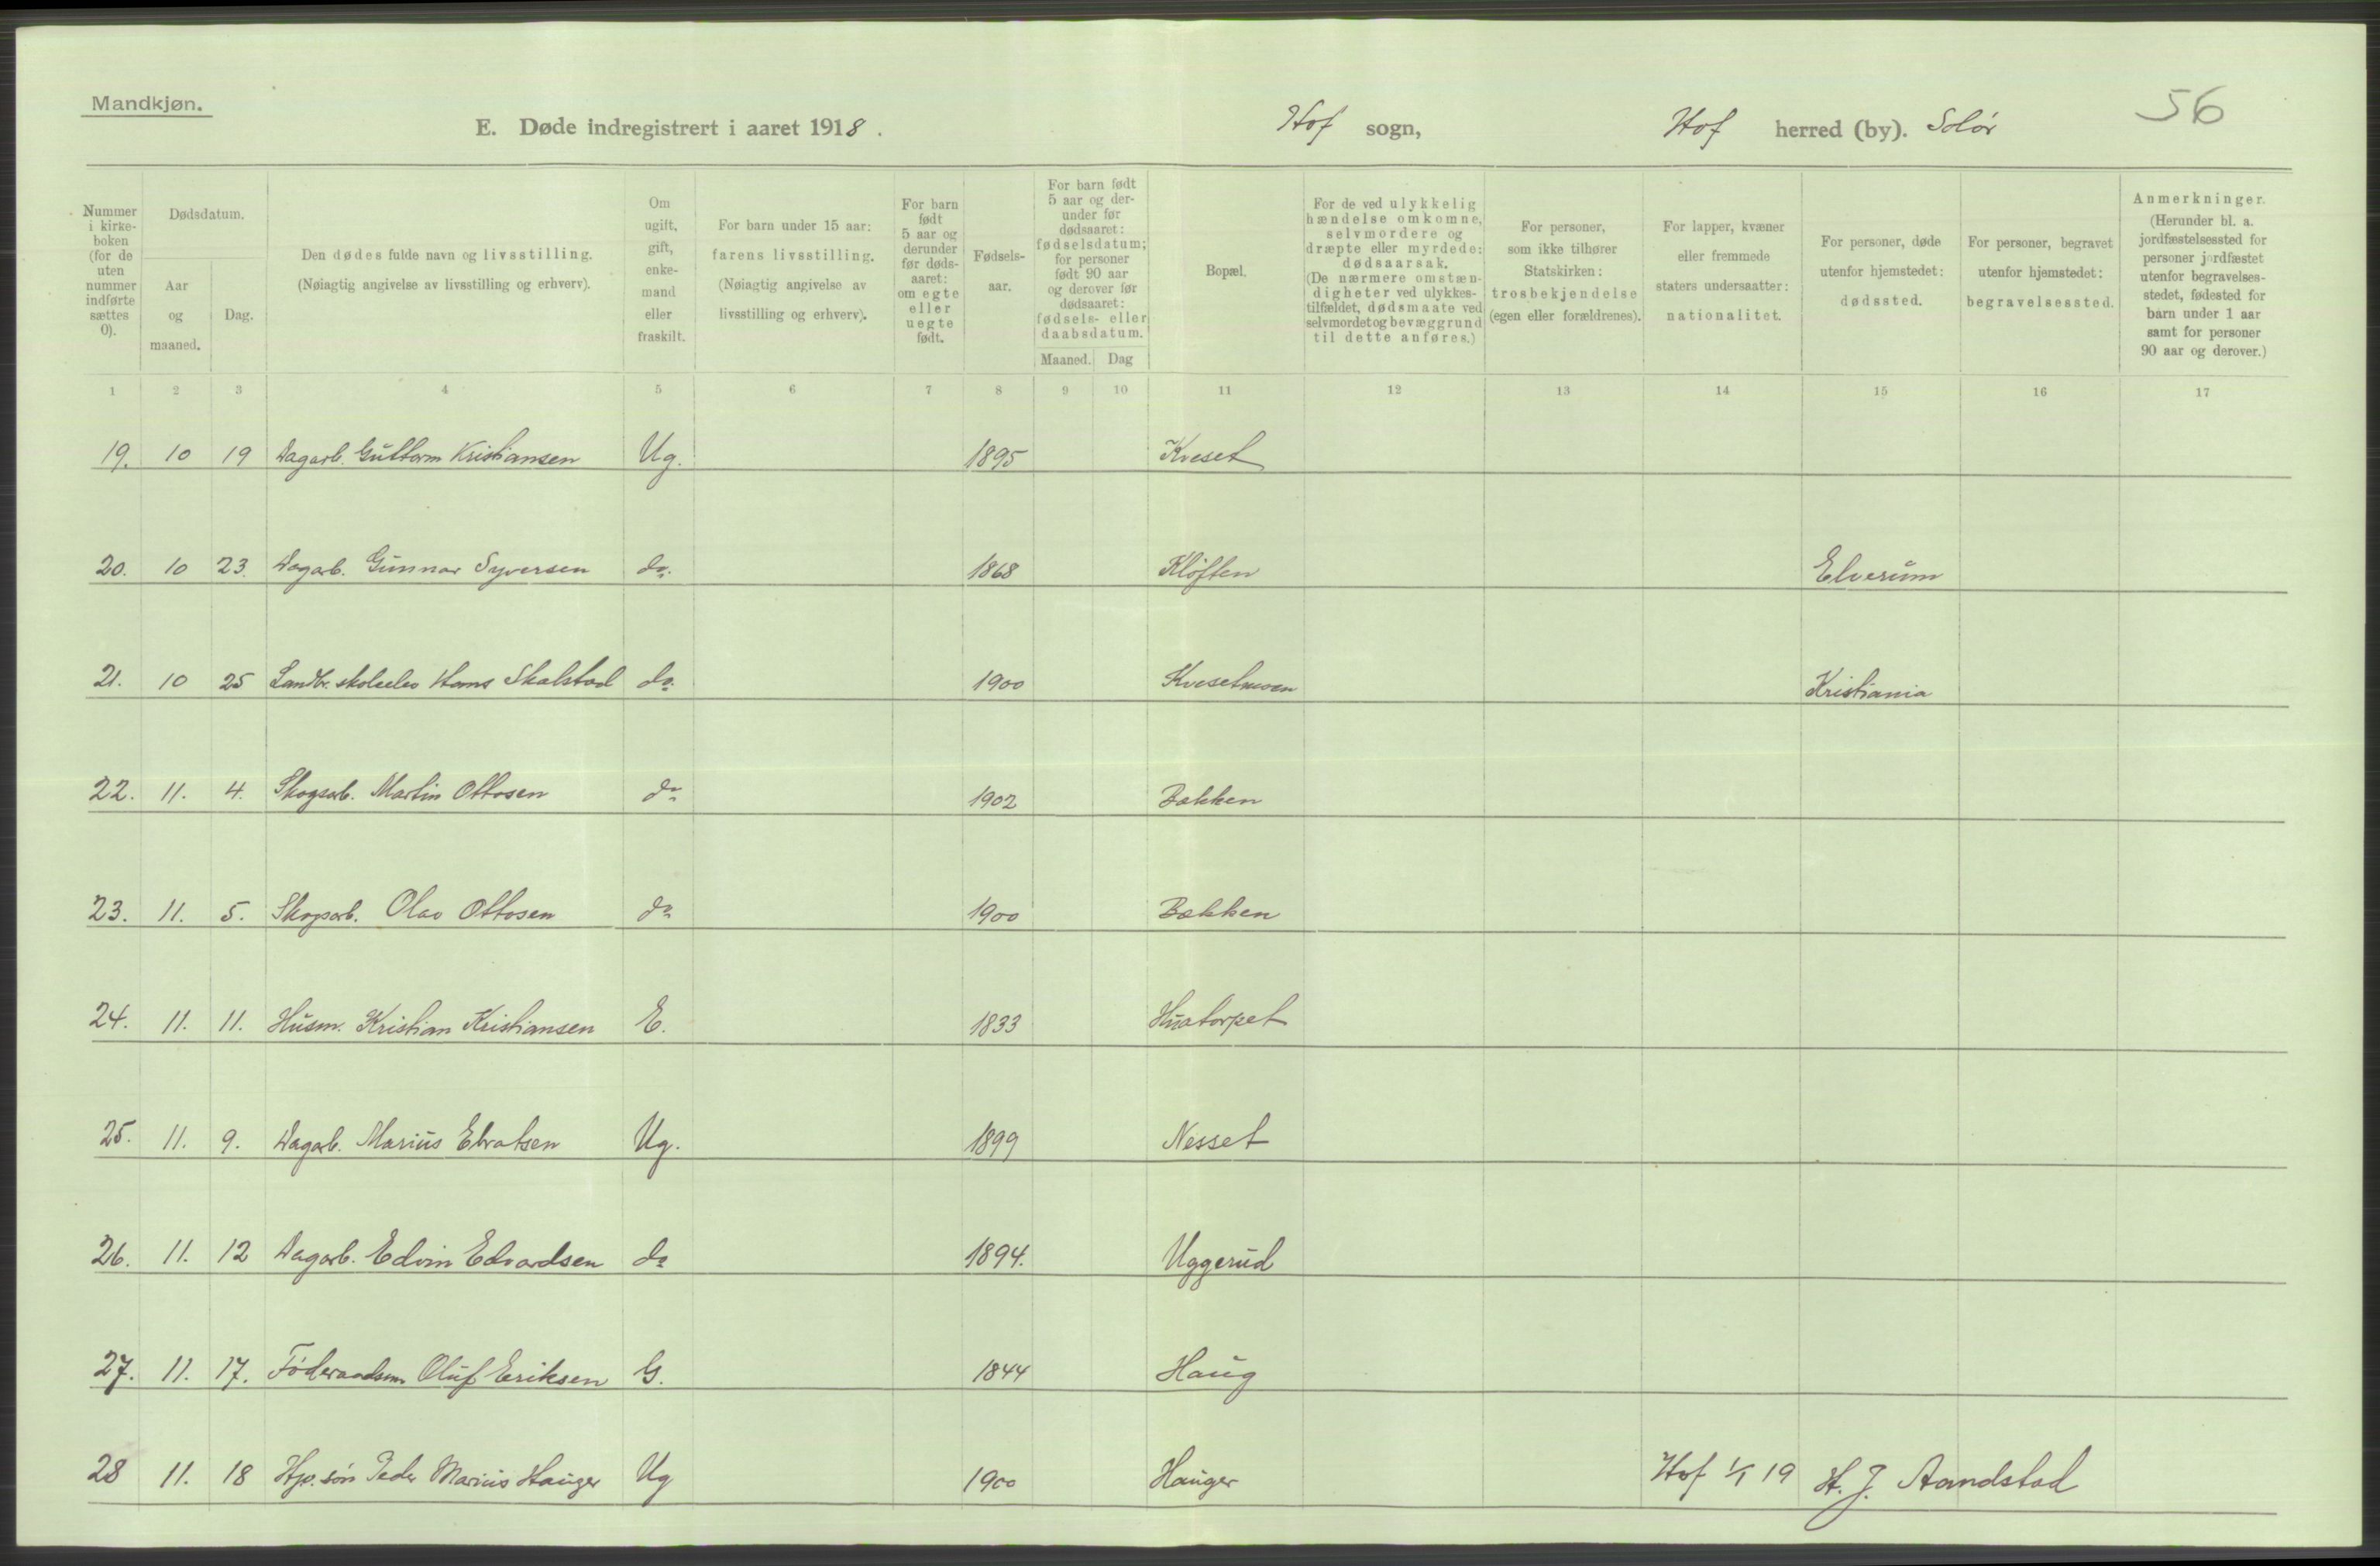 Mandkjøn.
56
E. Døde indregistrert i aaret 1918. Hof sogn, Hof herred (by). Solør
Nummer
i kirke-
boken
(for de
uten
nummer
indførte
sættes
0).
Dødsdatum.
Aar
og
maaned.
Dag.
Den dødes fulde navn og livsstilling.
(Nøiagtig angivelse av livsstilling og erhverv).
Om
ugift,
gift,
enke-
mand
eller
fraskilt.
For barn under 15 aar:
farens livsstilling.
(Nøiagtig angivelse av
livsstilling og erhverv).
For barn
født
5 aar og
derunder
før døds-
aaret:
om egte
eller
uegte
født.
Fødsels-
aar.
For barn født
5 aar og der-
under før
dødsaaret:
fødselsdatum;
for personer
født 90 aar
og derover før
dødsaaret:
fødsels- eller
daabsdatum.
Maaned. Dag
Bopæl.
For de ved ulykkelig
hændelse omkomne,
selvmordere og
dræpte eller myrdede:
dødsaarsak.
(De nærmere omstæn-
digheter ved ulykkes-
tilfældet, dødsmaate ved
selvmordet og bevæggrund
til dette anføres.)
For personer,
som ikke tilhører
Statskirken:
trosbekjendelse
(egen eller forældrenes).
For lapper, kvæner
eller fremmede
staters undersaatter:
nationalitet.
For personer, døde
utenfor hjemstedet:
dødssted.
For personer, begravet
utenfor hjemstedet:
begravelsessted.
Anmerkninger.
(Herunder bl. a.
jordfæstelsessted for
personer jordfæstet
utenfor begravelses-
stedet, fødested for
barn under 1 aar
samt for personer
90 aar og derover.)
1 2 3 4 5 6 7 8 9 10 11 12 13 14 15 16 17
19. 10 19 Dagarb. Guttorm Kristiansen Ug. 1895 Kveset
20. 10 23. Dagarb. Gunnar Syversen do. 1868 Kløften Elverum
21. 10 25 Landbr. skoleelev Hans Skalstad do. 1900 Kvesetmoen Kristiania
22. 11. 4. Skogsarb. Martin Ottosen do 1902 Bakken
23. 11. 5. Skogsarb. Olav Ottosen do 1900 Bakken
24. 11. 11. Husm. Kristian Kristiansen E. 1833 Huatorpet
25. 11. 9. Dagarb. Marius Ug. 1899 Nesset
26. 11. 12 Dagarb. Edvin Edvardsen do 1894. Uggerud
27. 11. 17. Føderaadsm Oluf Eriksen G. 1844 Haug
28 11. 18 Hjv. søn Peder Marius Hauger Ug 1900 Hauger Hof 1/1 19 H. J. Aandstad